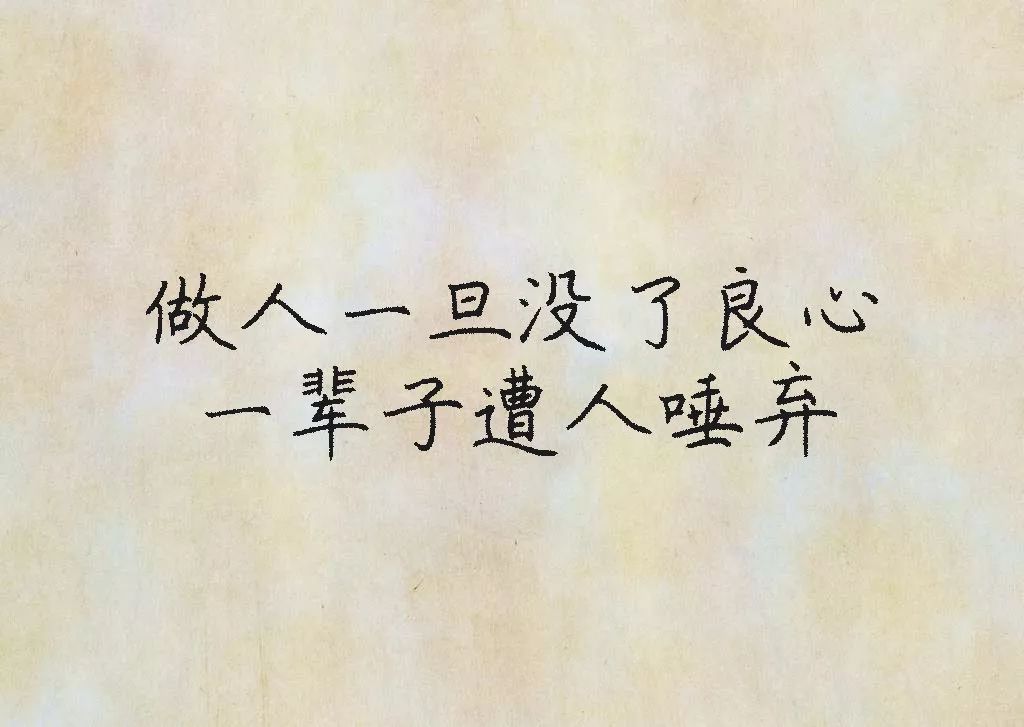 做人一旦没了良心
一辈子遭人唾弃